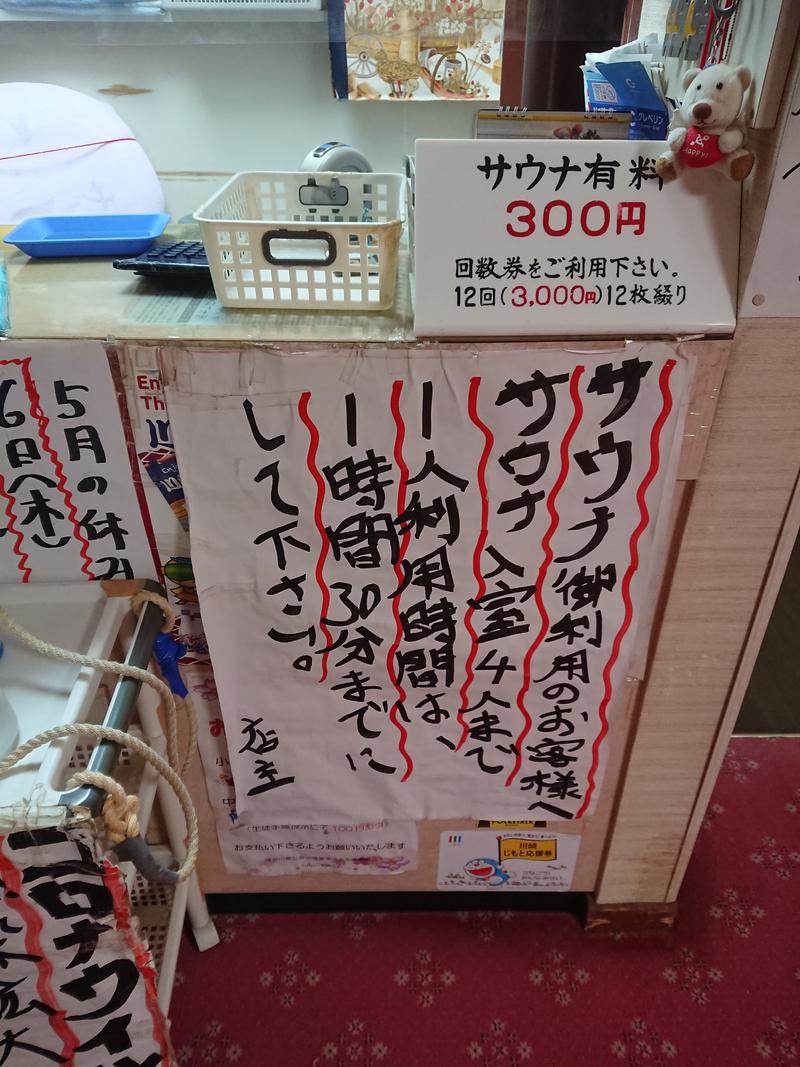 サウナ有料
300円
回数券をご利用下さい。
12回(3,000円)12枚綴り
Happy!
クレベリン
サウナ御利用のお客様へ
サウナ入室4人まで
1人利用時間は、
1時間30分までに
して下さい。
店主
5月の休み
6日(木)
En
Th
(生徒手帳提示にて100円割引)
お支払い下さるようお願いいたします
川崎
じもと応援券
コロナウイ
拡大